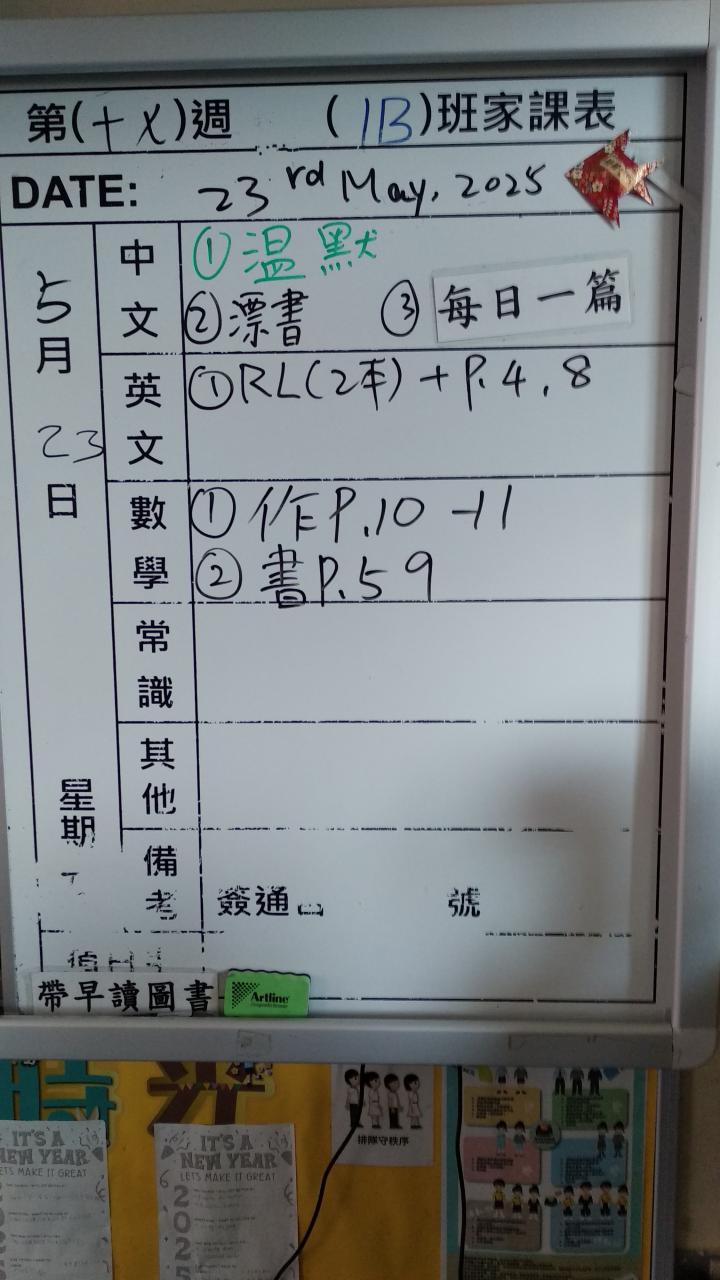 第(十七)週 (1B)班家課表
DATE: 23rd May, 2025
5月23日
星期
中文
①溫默
②漂書 ③每日一篇
英文
①RL(2本) + P.4, 8
數學
①作P.10-11
②書P.59
常識
其他
備考
簽通 號
帶早讀圖書
Artline
IT'S A NEW YEAR
LETS MAKE IT GREAT
IT'S A NEW YEAR
LETS MAKE IT GREAT
2025
排隊守秩序